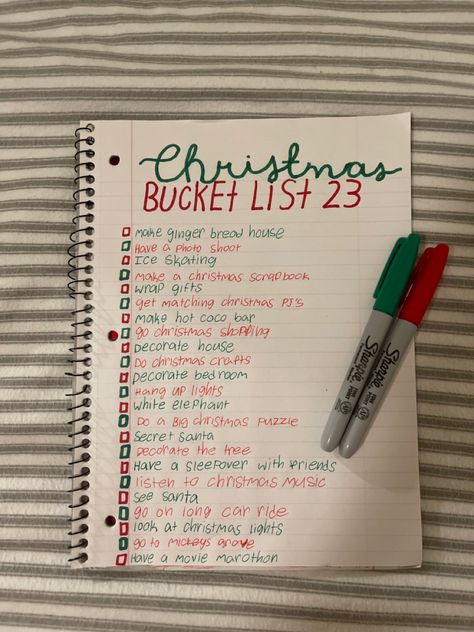 Christmas
BUCKET LIST 23
make ginger bread house
Have a photo shoot
Ice skating
make a christmas scrapbook
wrap gifts
get matching christmas PJ's
make hot coco bar
go christmas shopping
decorate house
Do christmas crafts
Decorate bedroom
Hang up lights
white elephant
Do a Big christmas puzzle
Secret santa
Decorate the tree
Have a sleepover with friends
listen to christmas music
see santa
go on long car ride
look at christmas lights
go to mickeys grave
Have a movie marothon
Sharpie
Sharpie